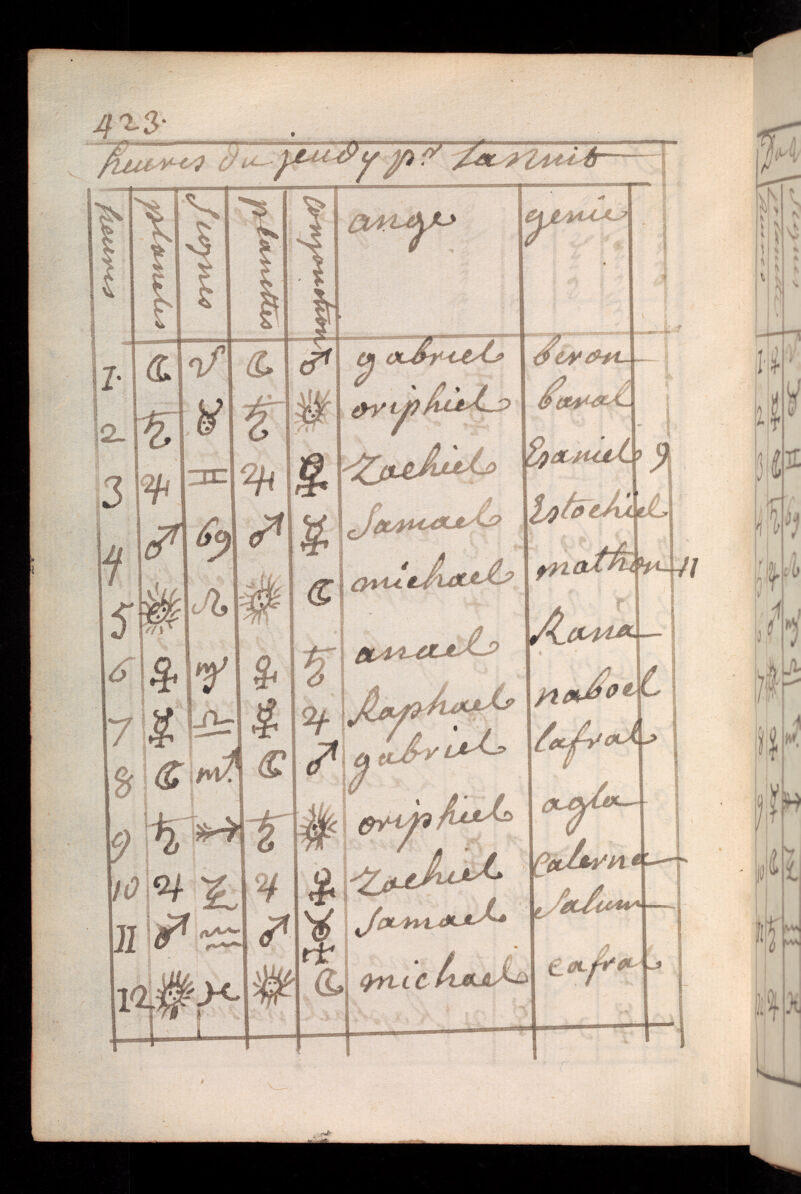 423.
heures du jeudy pr. Lannuit
heures planetes Signes planettes Conjonction ange genie
1. ☾ ♈ ☾ ♂ gabriel beron
2 ♄ ♉ ♄ ☉ oriphiel baral
3 ♃ ♊ ♃ ♀ Zachiel Esaniel 9
4 ♂ ♋ ♂ ☿ Samael Estochiel
5 ☉ ♌ ☉ ☾ michael mathon 11
6 ♀ ♍ ♀ ♄ anael Rana
7 ☿ ♎ ☿ ♃ Raphael naboel
8 ☾ ♏ ☾ ♂ gabriel lafral
9 ♄ ♐ ♄ ☉ oriphiel agla
10 ♃ ♑ ♃ ♀ Zachiel Calerna
11 ♂ ♒ ♂ ☿ Samael Salum
12 ☉ ♓ ☉ ☾ michael cafral